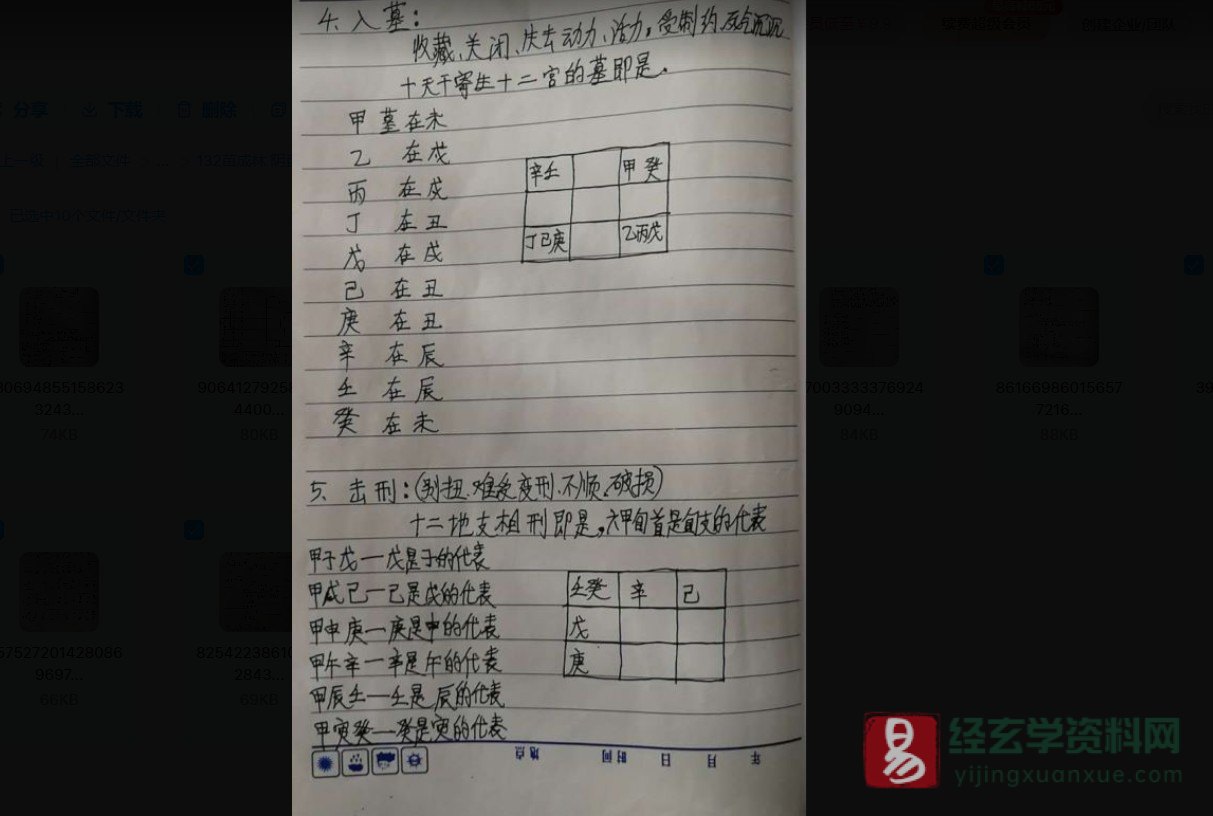 4. 入墓：
收藏、关闭、失去动力、活力，受制约，死气沉沉
十天干寄生十二宫的墓即是.
甲 墓在未
乙 在戌
丙 在戌
丁 在丑
戊 在戌
己 在丑
庚 在丑
辛 在辰
壬 在辰
癸 在未
辛壬 甲癸
丁己庚 乙丙戊
5、击刑：(别扭、难受、变形、不顺、破损)
十二地支相刑即是，六甲旬首是旬支的代表
甲子戊—戊是子的代表
甲戌己—己是戌的代表
甲申庚—庚是申的代表
甲午辛—辛是午的代表
甲辰壬—壬是辰的代表
甲寅癸—癸是寅的代表
壬癸 辛 己
戊
庚
年 月 日 时间 地点
易 经玄学资料网
yijingxuanxue.com
分享 下载 删除
上一级 全部文件
已选中10个文件/文件夹
80694855158623
3243...
74KB
9064127925
4400...
80KB
7003333376924
9094...
84KB
86166986015657
7216...
88KB
57527201428086
9697...
66KB
825422386
2843...
69KB